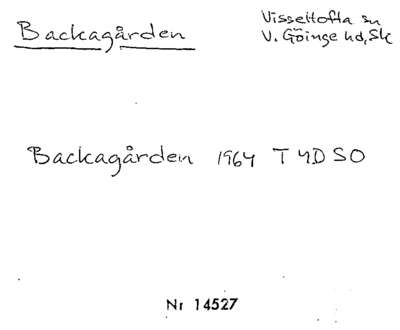 Backagården
Visseltofta sn
V. Göinge hd, Sk
Backagården 1964 T 4D SO
Nr 14527